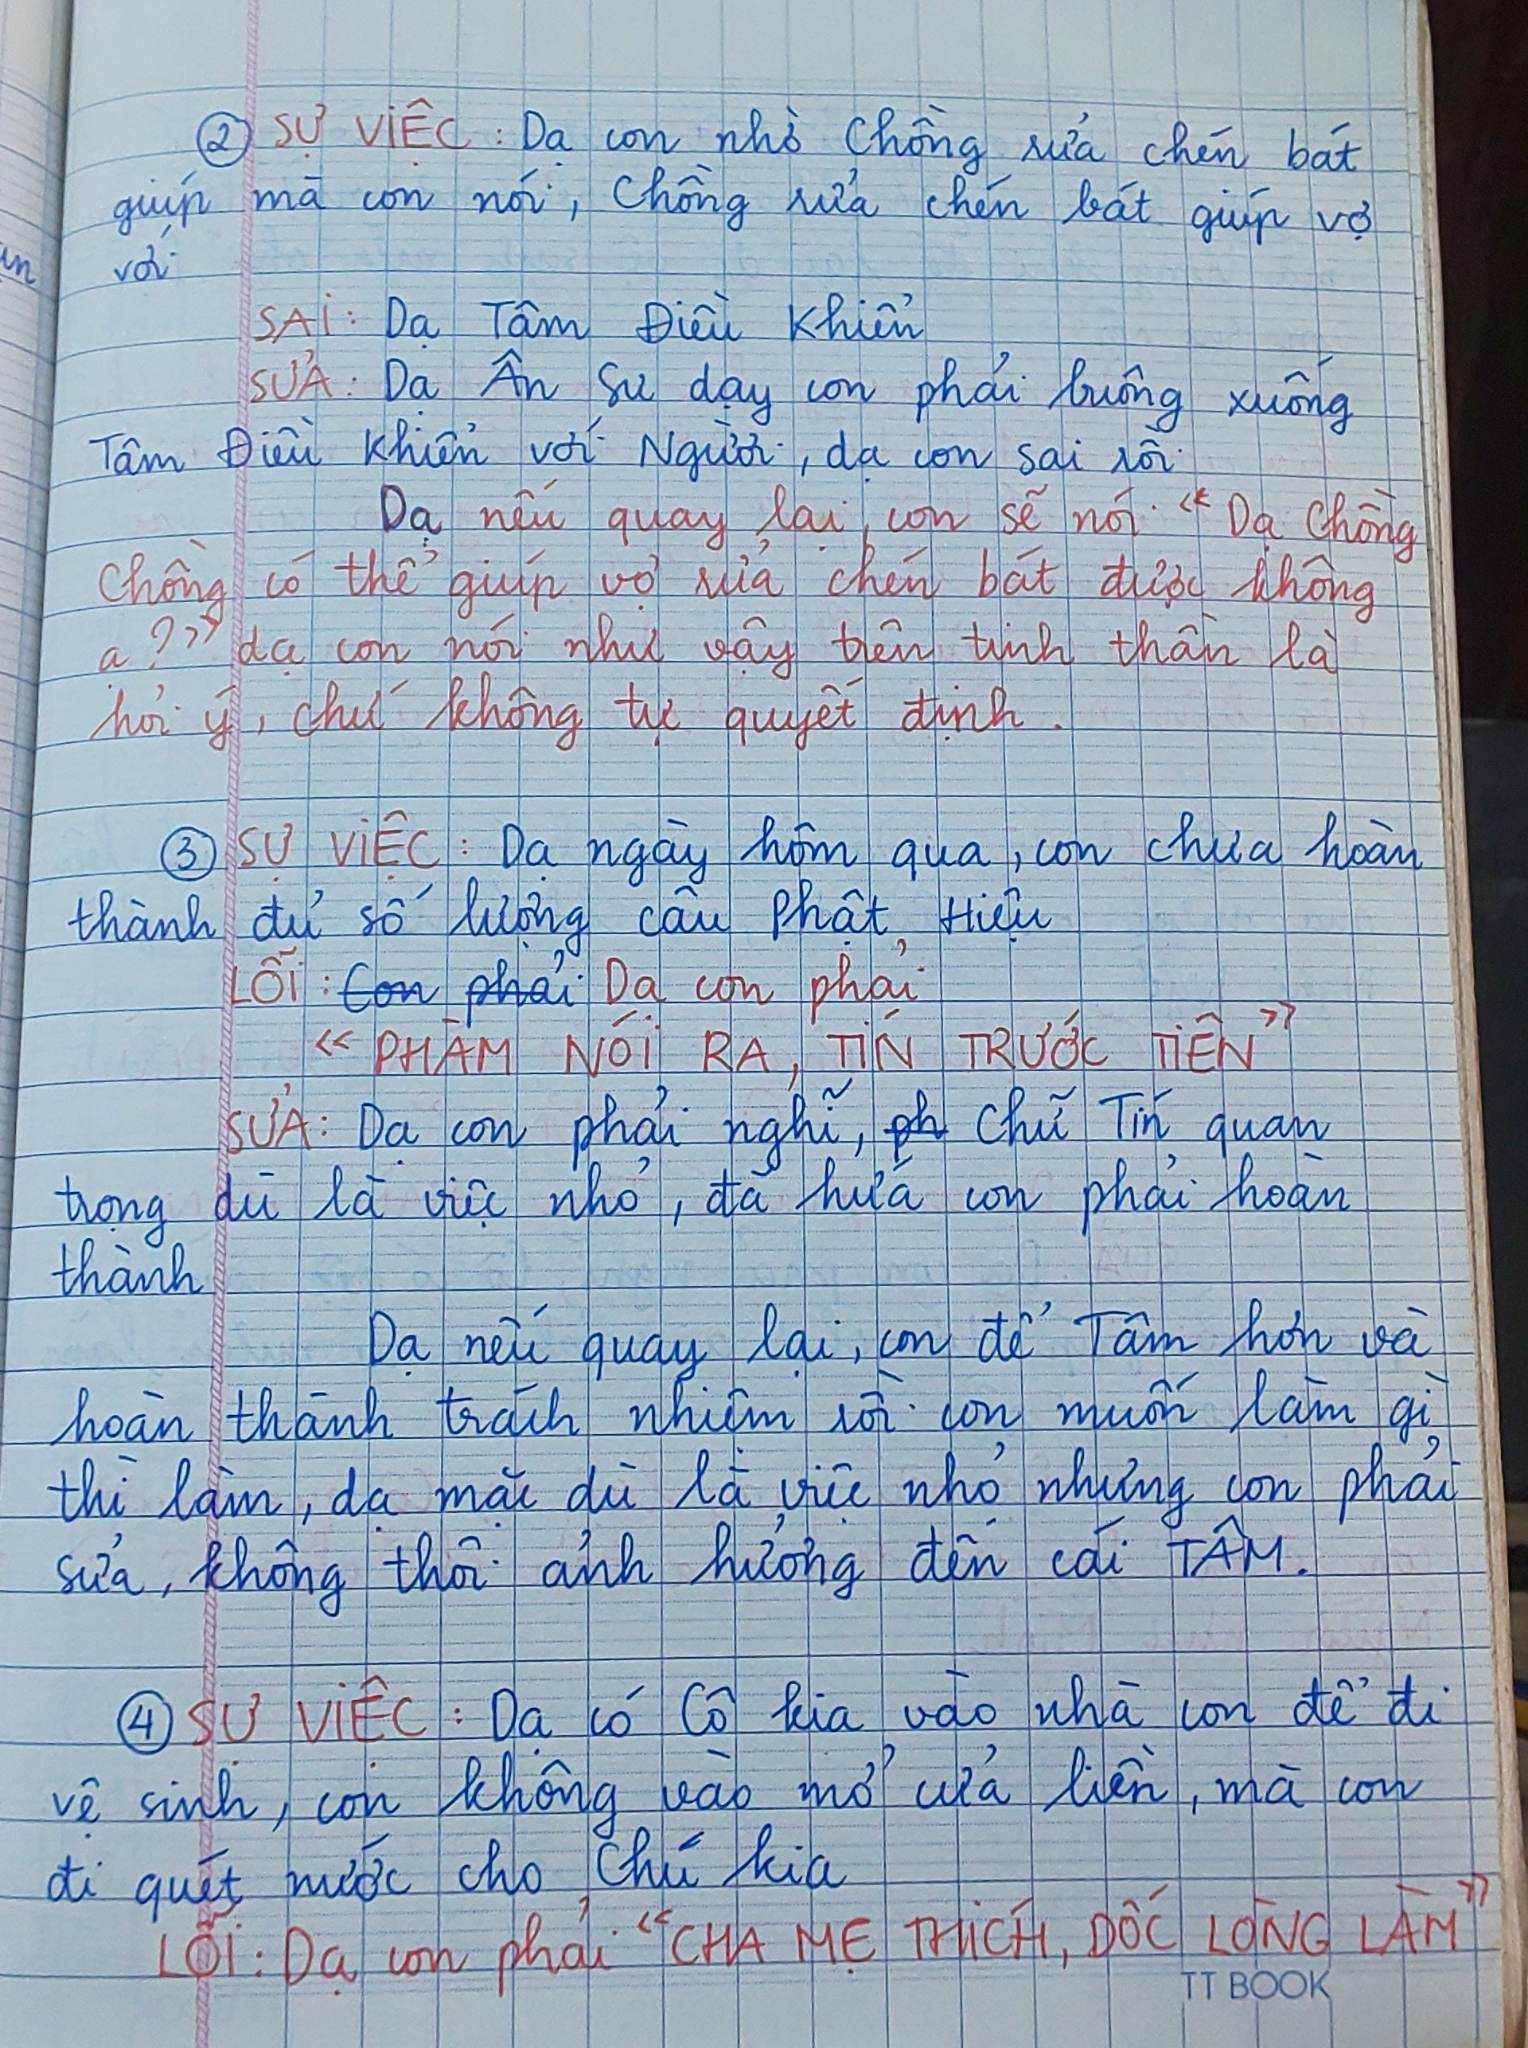 ② SỰ VIỆC: Dạ con nhờ Chồng rửa chén bát
giúp mà con nói, Chồng rửa chén bát giúp vợ
với
SAI: Dạ Tâm Điều Khiển
SỬA: Dạ Ân Sư dạy con phải buông xuống
Tâm Điều Khiển với Người, dạ con sai rồi
Dạ nếu quay lại, con sẽ nói "Dạ Chồng
Chồng có thể giúp vợ rửa chén bát được không
ạ?" dạ con nói như vậy trên tinh thần là
hỏi ý, chứ không tự quyết định.
③ SỰ VIỆC: Dạ ngày hôm qua, con chưa hoàn
thành đủ số lượng câu Phật Hiệu
LỖI: Con phải Dạ con phải
"PHÀM NÓI RA, TÍN TRƯỚC TIÊN"
SỬA: Dạ con phải nghĩ, ph Chữ Tín quan
trọng dù là việc nhỏ, đã hứa con phải hoàn
thành
Dạ nếu quay lại, con để Tâm hơn và
hoàn thành trách nhiệm rồi con muốn làm gì
thì làm, dạ mặc dù là việc nhỏ nhưng con phải
sửa, không thôi ảnh hưởng đến cái TÂM.
④ SỰ VIỆC: Dạ có Cô kia vào nhà con để đi
vệ sinh, con không vào mở cửa liền, mà con
đi quét nước cho Chú kia
LỖI: Dạ con phải "CHA MẸ THÍCH, DỐC LÒNG LÀM"
TT BOOK